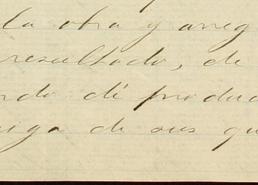 la otra y arreg
resultado, de
ndo dé produc
iga de sus qu